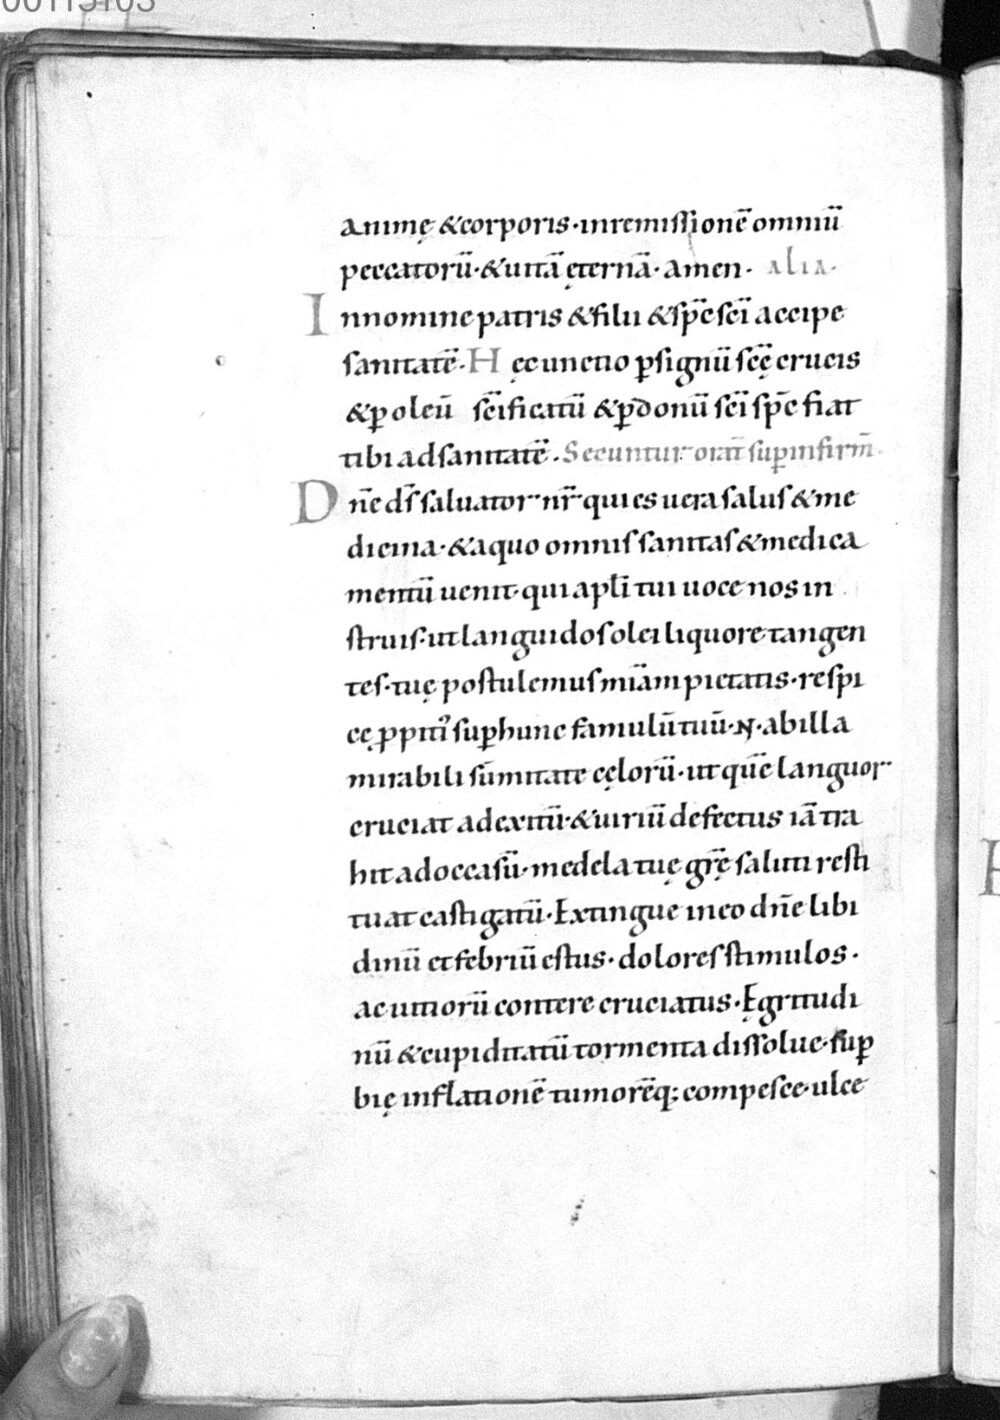 00115103
animę &corporis·inremissionē omniū
peccatorū·&uitā ęternā·amen· alia·
Innomine patris &filii &sp̄c sc̄i accipe
sanitatē·Hęc unctio ꝑsignū sc̄ę crucis
&ꝑoleū sc̄ificatū &ꝑdonū sc̄i sp̄c fiat
tibi adsanitatē. Secuntur orat̄ suꝑinfirm̄·
Dn̄e ds̄ saluator nr̄ qui es uera salus &me
dicina·&aquo omnis sanitas &medica
mentū uenit·qui apl̄i tui uoce nos in
struis·ut languidos olei liquore tangen
tes·tuę postulemus mīam pietatis·respi
cę ꝓpitiꝰ suꝑhunc famulū tuū·N·abilla
mirabili sūmitate cęlorū·ut quē languor
cruciat adexitū·&uiriū defectus iā tra
hit adoccasū·medela tuę gr̄ę saluti resti
tuat castigatū·Extingue ineo dn̄e libi
dinū et febriū estus·dolores stimulos·
ac uitiorū contere cruciatus·Ęgritudi
nū &cupiditatū tormenta dissolue·suꝑ
bię inflationē tumorēq; compesce·ulce